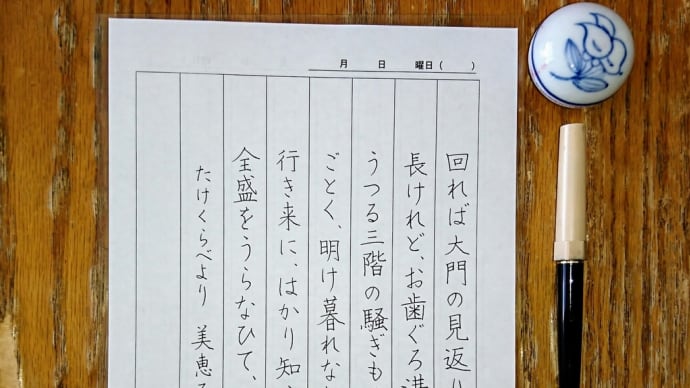 月 日 曜日( )
回れば大門の見返り
長けれど、お歯ぐろ溝
うつる三階の騒ぎも
ごとく、明け暮れな
行き来に、はかり知
全盛をうらなひて、
たけくらべより 美恵